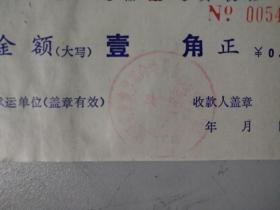 № 0054
金额(大写)壹 角正 ¥0.
运单位(盖章有效) 收款人盖章
年 月